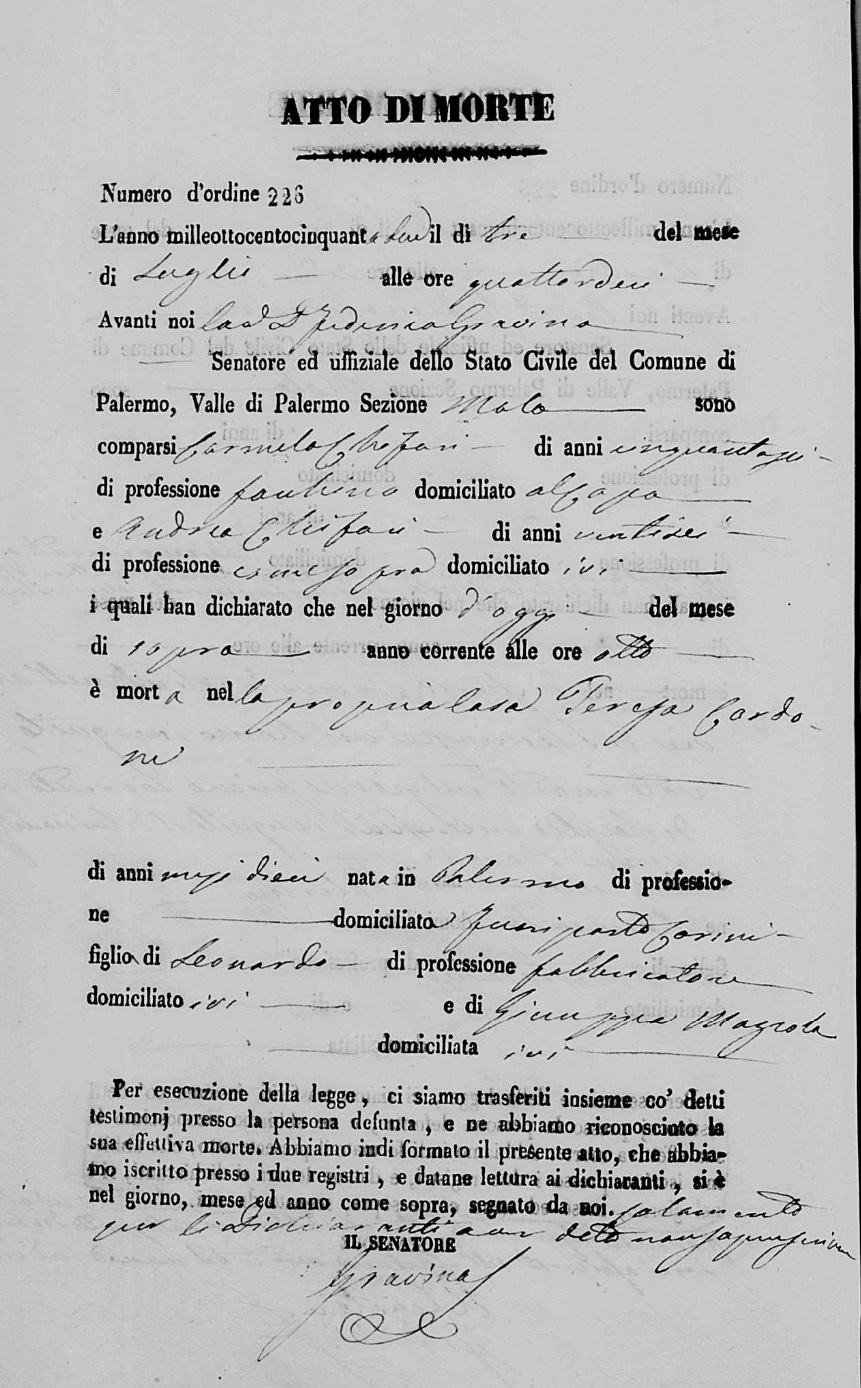 ATTO DI MORTE
Numero d'ordine 226
L'anno milleottocentocinquanta due il di tre del mese
di Luglio alle ore quattordeci
Avanti noi Cav D. Federico Gravina
Senatore ed uffiziale dello Stato Civile del Comune di
Palermo, Valle di Palermo Sezione Molo sono
comparsi Carmelo Chifari di anni cinquantasei
di professione facchino domiciliato al Capo
e Andrea Chifari di anni ventisei
di professione come sopra domiciliato ivi
i quali han dichiarato che nel giorno d'oggi del mese
di sopra anno corrente alle ore otto
è morta nella propria casa Teresa Cardo-
ne
di anni mesi dieci nata in Palermo di professio-
ne domiciliata fuori porta Carini
figlia di Leonardo di professione fabbricatore
domiciliato ivi e di Giuseppa
domiciliata ivi
Per esecuzione della legge, ci siamo trasferiti insieme co' detti
testimonj presso la persona defunta, e ne abbiamo riconosciuto la
sua effettiva morte. Abbiamo indi formato il presente atto, che abbia-
mo iscritto presso i due registri, e datane lettura ai dichiaranti, si è
nel giorno, mese ed anno come sopra, segnato da noi. solamente
per li Dichiaranti aver detto non saper scrivere
IL SENATORE
Gravina